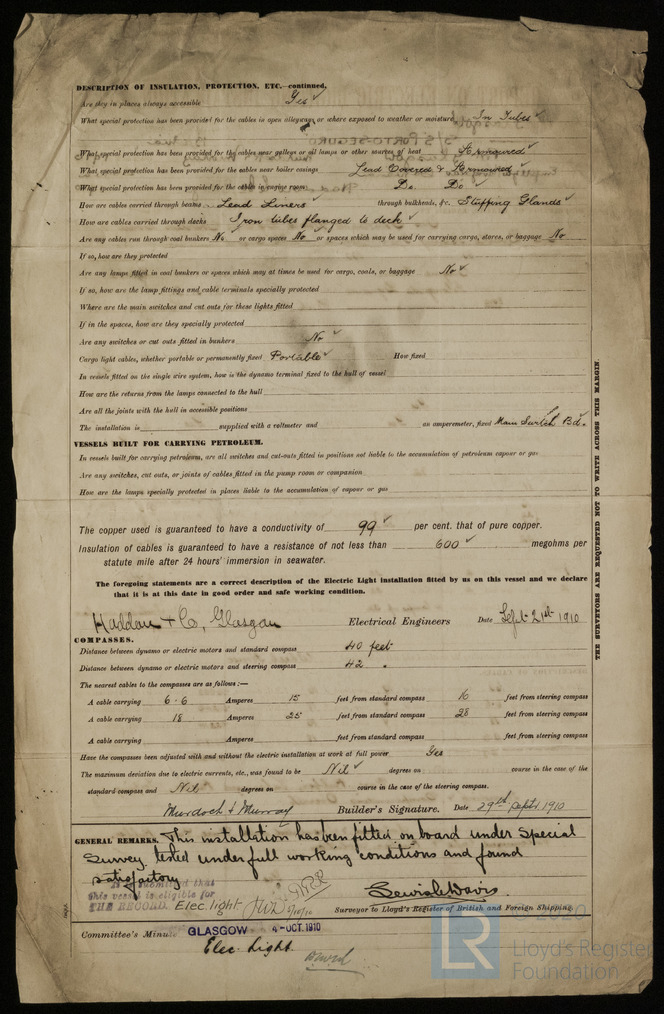 DESCRIPTION OF INSULATION, PROTECTION, ETC.—continued.
Are they in places always accessible Yes ✓
What special protection has been provided for the cables in open alleyways or where exposed to weather or moisture In Tubes ✓
What special protection has been provided for the cables near galleys or oil lamps or other sources of heat Armoured ✓
What special protection has been provided for the cables near boiler casings Lead Covered & Armoured ✓
What special protection has been provided for the cables in engine room Do. Do ✓
How are cables carried through beams Lead Liners ✓ through bulkheads, &c. Stuffing Glands ✓
How are cables carried through decks Iron tubes flanged to deck ✓
Are any cables run through coal bunkers No ✓ or cargo spaces No ✓ or spaces which may be used for carrying cargo, stores, or baggage No ✓
If so, how are they protected
Are any lamps fitted in coal bunkers or spaces which may at times be used for cargo, coals, or baggage No ✓
If so, how are the lamp fittings and cable terminals specially protected
Where are the main switches and cut outs for these lights fitted
If in the spaces, how are they specially protected
Are any switches or cut outs fitted in bunkers No ✓
Cargo light cables, whether portable or permanently fixed Portable ✓ How fixed
In vessels fitted on the single wire system, how is the dynamo terminal fixed to the hull of vessel
How are the returns from the lamps connected to the hull
Are all the joints with the hull in accessible positions
The installation is supplied with a voltmeter and an amperemeter, fixed Main Switch Bd. ✓
VESSELS BUILT FOR CARRYING PETROLEUM.
In vessels built for carrying petroleum, are all switches and cut-outs fitted in positions not liable to the accumulation of petroleum vapour or gas
Are any switches, cut outs, or joints of cables fitted in the pump room or companion
How are the lamps specially protected in places liable to the accumulation of vapour or gas
The copper used is guaranteed to have a conductivity of 99 ✓ per cent. that of pure copper.
Insulation of cables is guaranteed to have a resistance of not less than 600 ✓ megohms per
statute mile after 24 hours' immersion in seawater.
The foregoing statements are a correct description of the Electric Light installation fitted by us on this vessel and we declare
that it is at this date in good order and safe working condition.
Haddow & Co, Glasgow Electrical Engineers Date Sept 21st 1910
COMPASSES.
Distance between dynamo or electric motors and standard compass 40 feet
Distance between dynamo or electric motors and steering compass 42 "
The nearest cables to the compasses are as follows:—
A cable carrying 6.6 Amperes 15 feet from standard compass 10 feet from steering compass
A cable carrying 18 Amperes 25 feet from standard compass 28 feet from steering compass
A cable carrying Amperes feet from standard compass feet from steering compass
Have the compasses been adjusted with and without the electric installation at work at full power Yes
The maximum deviation due to electric currents, etc., was found to be Nil ✓ degrees on course in the case of the
standard compass and Nil degrees on course in the case of the steering compass.
Murdoch & Murray Builder's Signature. Date 29th Sept. 1910
GENERAL REMARKS. This installation has been fitted on board under Special
Survey, tested under full working conditions and found
satisfactory
It is submitted that
this vessel is eligible for
THE RECORD Elec. light 5/10/10
Surveyor to Lloyd's Register of British and Foreign Shipping.
Committee's Minute GLASGOW 4-OCT.1910
Elec. Light
THE SURVEYORS ARE REQUESTED NOT TO WRITE ACROSS THIS MARGIN.
© 2020
LR
Lloyd's Register
Foundation